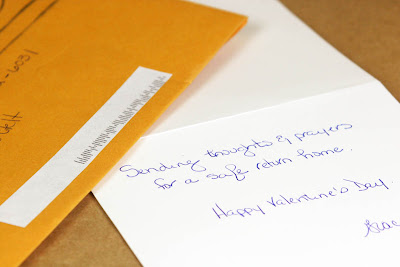 Sending thoughts & prayers
for a safe return home.
Happy Valentine's Day.
-6031